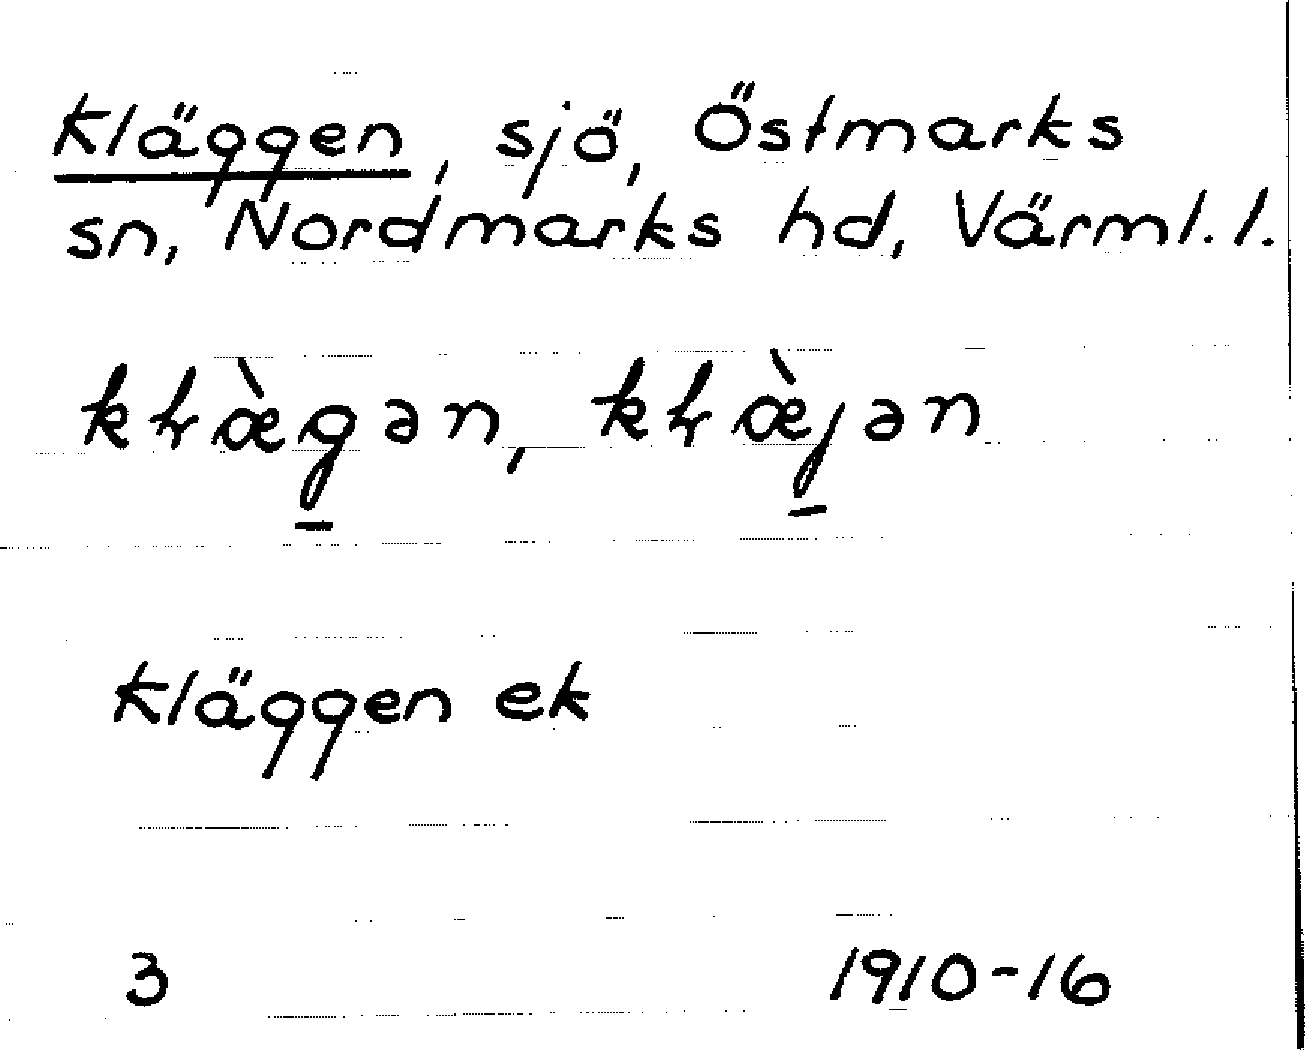 Kläggen, sjö, Östmarks
sn, Nordmarks hd, Värml. l.
kɫæ̀g̲ən, kɫæ̀j̲ən
Kläggen ek
3 1910-16